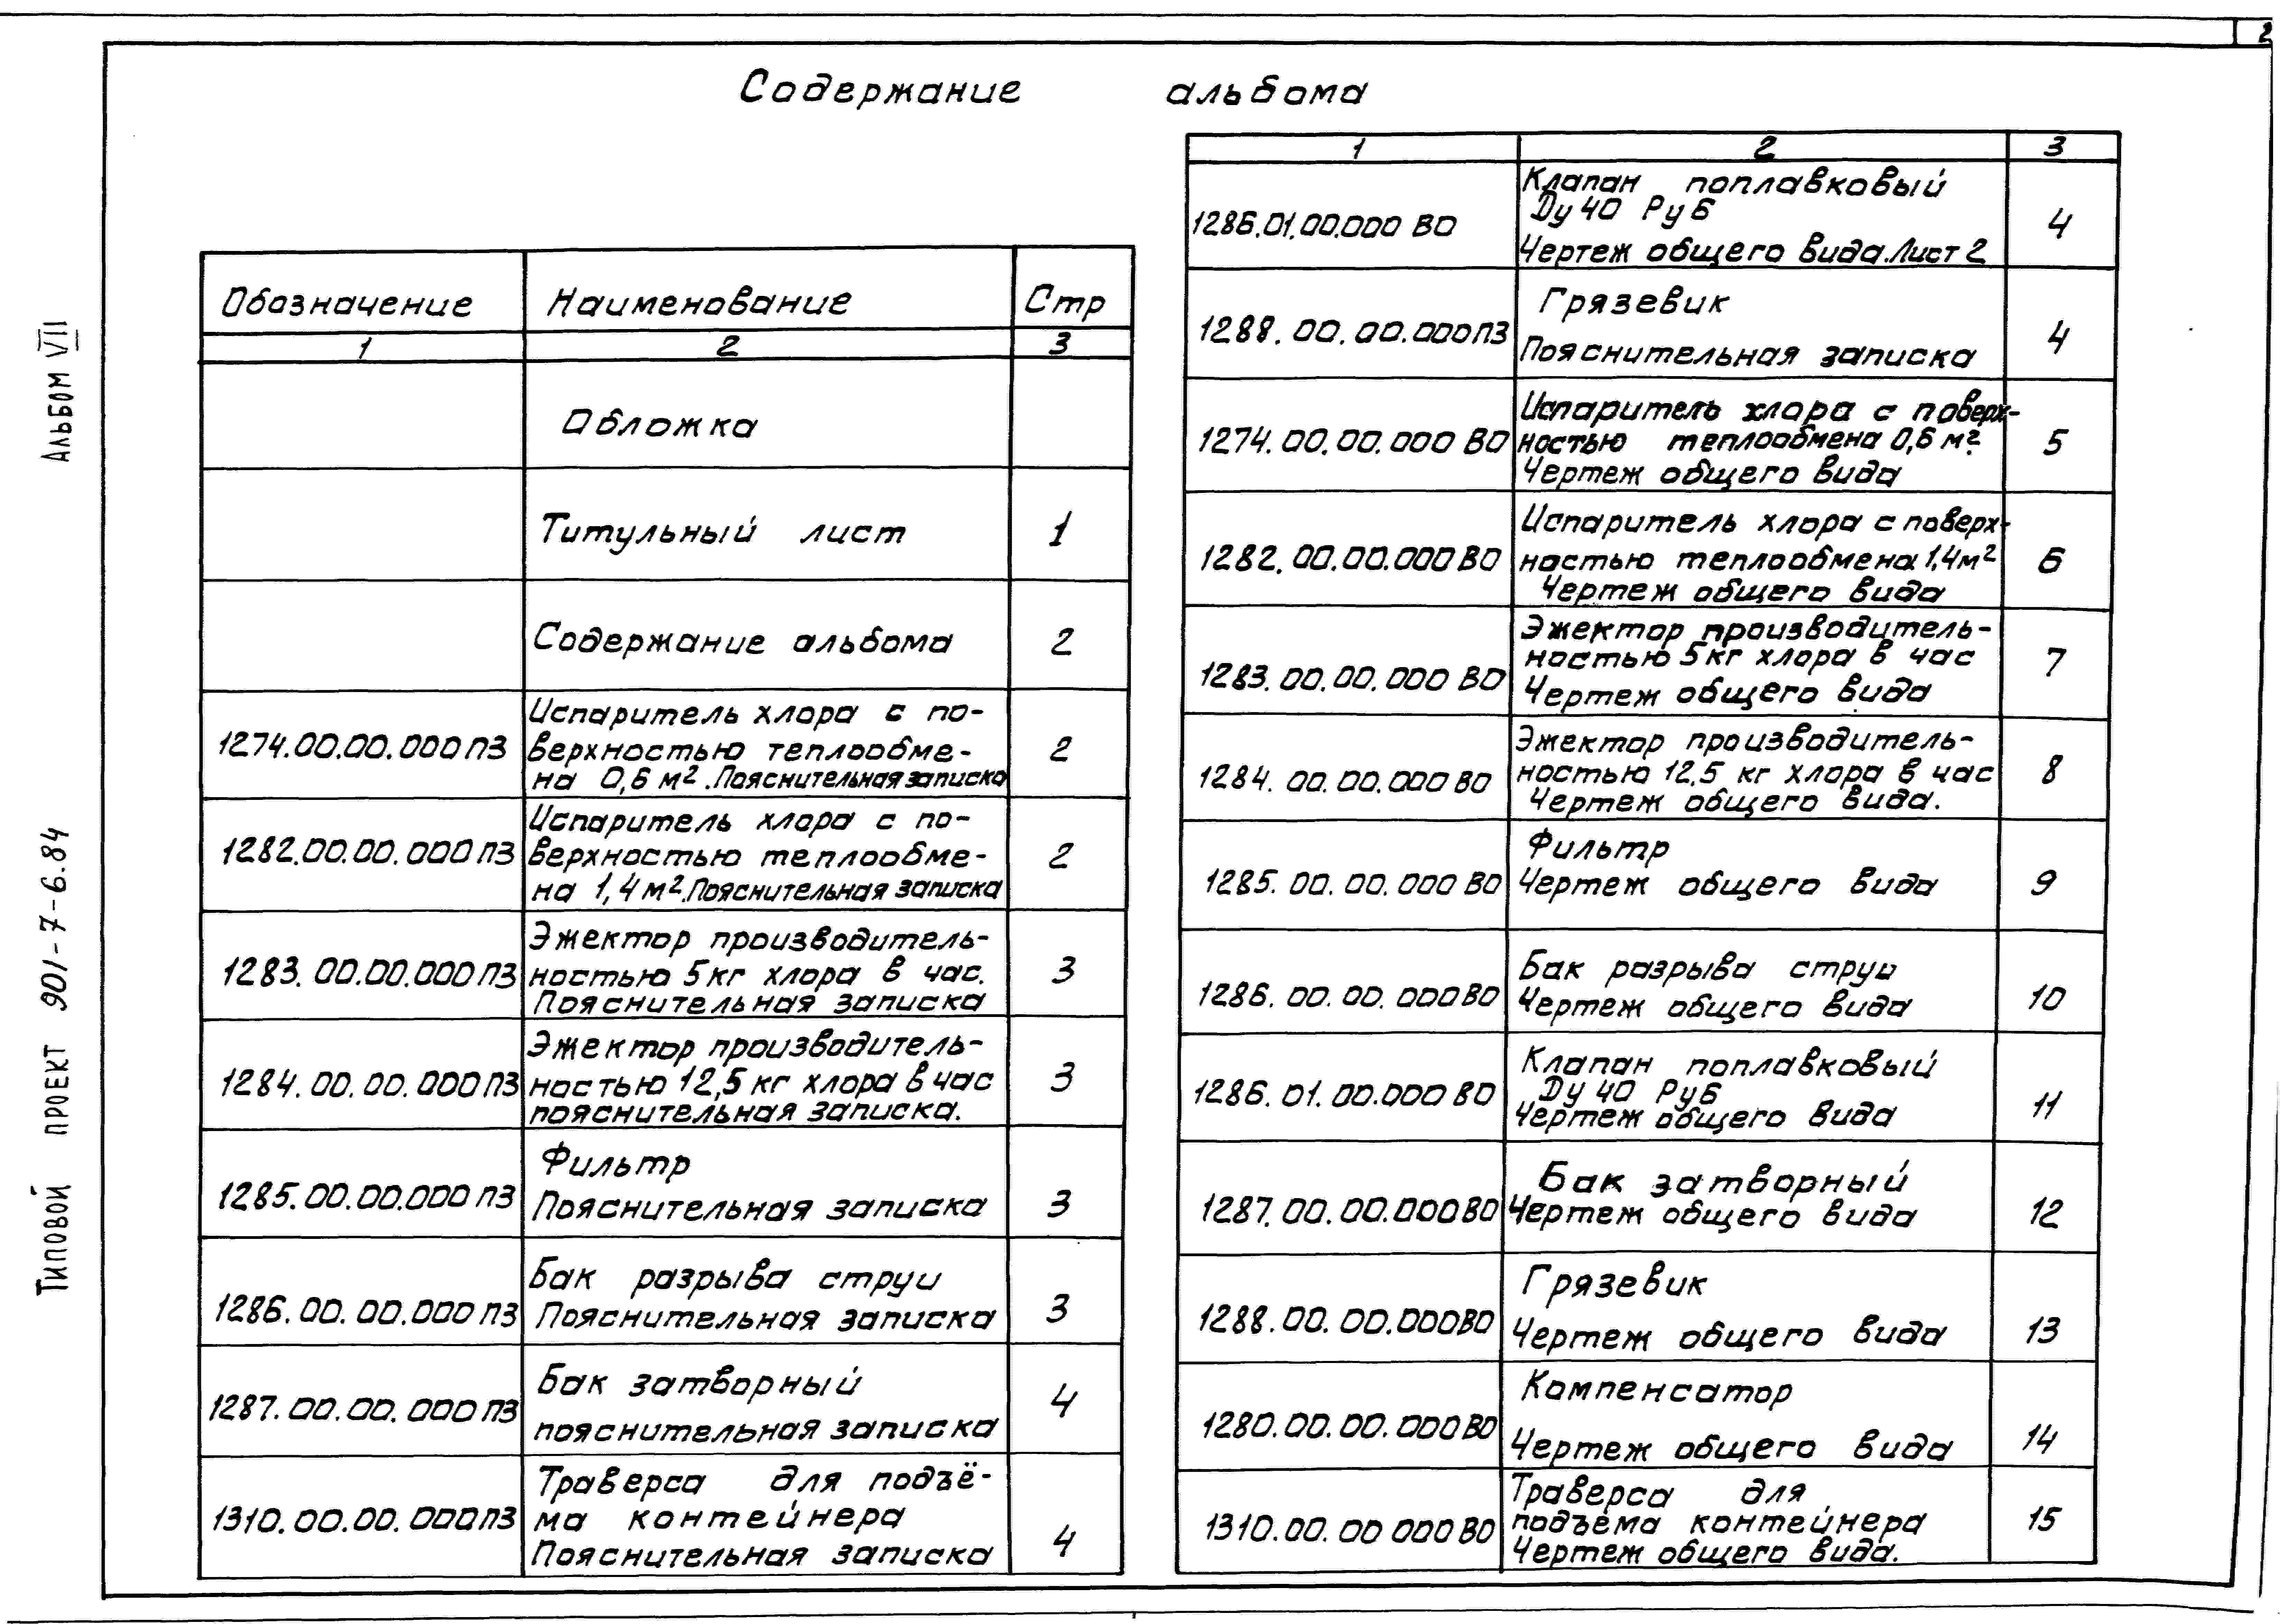 2
Содержание альбома
Альбом VII
Типовой проект 901-7-6.84
Обозначение Наименование Стр
1 2 3
Обложка
Титульный лист 1
Содержание альбома 2
1274.00.00.000 ПЗ
Испаритель хлора с по-
верхностью теплообме-
на 0,6 м². Пояснительная записка
2
1282.00.00.000 ПЗ
Испаритель хлора с по-
верхностью теплообме-
на 1,4 м². Пояснительная записка
2
1283.00.00.000 ПЗ
Эжектор производитель-
ностью 5 кг хлора в час.
Пояснительная записка
3
1284.00.00.000 ПЗ
Эжектор производитель-
ностью 12,5 кг хлора в час
пояснительная записка.
3
1285.00.00.000 ПЗ
Фильтр
Пояснительная записка
3
1286.00.00.000 ПЗ
Бак разрыва струи
Пояснительная записка
3
1287.00.00.000 ПЗ
Бак затворный
пояснительная записка
4
1310.00.00.000 ПЗ
Траверса для подъё-
ма контейнера
Пояснительная записка
4
1 2 3
1286.01.00.000 ВО
Клапан поплавковый
Ду 40 Ру 6
Чертеж общего вида. Лист 2
4
1288.00.00.000 ПЗ
Грязевик
Пояснительная записка
4
1274.00.00.000 ВО
Испаритель хлора с поверх-
ностью теплообмена 0,6 м².
Чертеж общего вида
5
1282.00.00.000 ВО
Испаритель хлора с поверх-
ностью теплообмена 1,4 м²
Чертеж общего вида
6
1283.00.00.000 ВО
Эжектор производитель-
ностью 5 кг хлора в час
Чертеж общего вида
7
1284.00.00.000 ВО
Эжектор производитель-
ностью 12,5 кг хлора в час
Чертеж общего вида.
8
1285.00.00.000 ВО
Фильтр
Чертеж общего вида
9
1286.00.00.000 ВО
Бак разрыва струи
Чертеж общего вида
10
1286.01.00.000 ВО
Клапан поплавковый
Ду 40 Ру 6
Чертеж общего вида
11
1287.00.00.000 ВО
Бак затворный
Чертеж общего вида
12
1288.00.00.000 ВО
Грязевик
Чертеж общего вида
13
1280.00.00.000 ВО
Компенсатор
Чертеж общего вида
14
1310.00.00 000 ВО
Траверса для
подъёма контейнера
Чертеж общего вида.
15